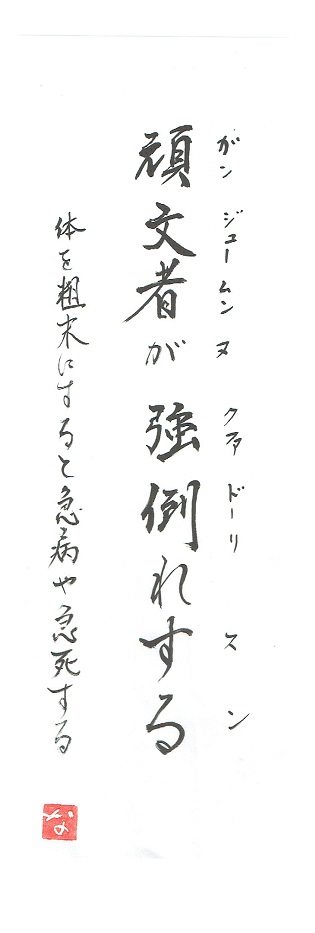 ガンジュームンヌクァドーリスン
頑文者が強倒れする
体を粗末にすると急病や急死する
な